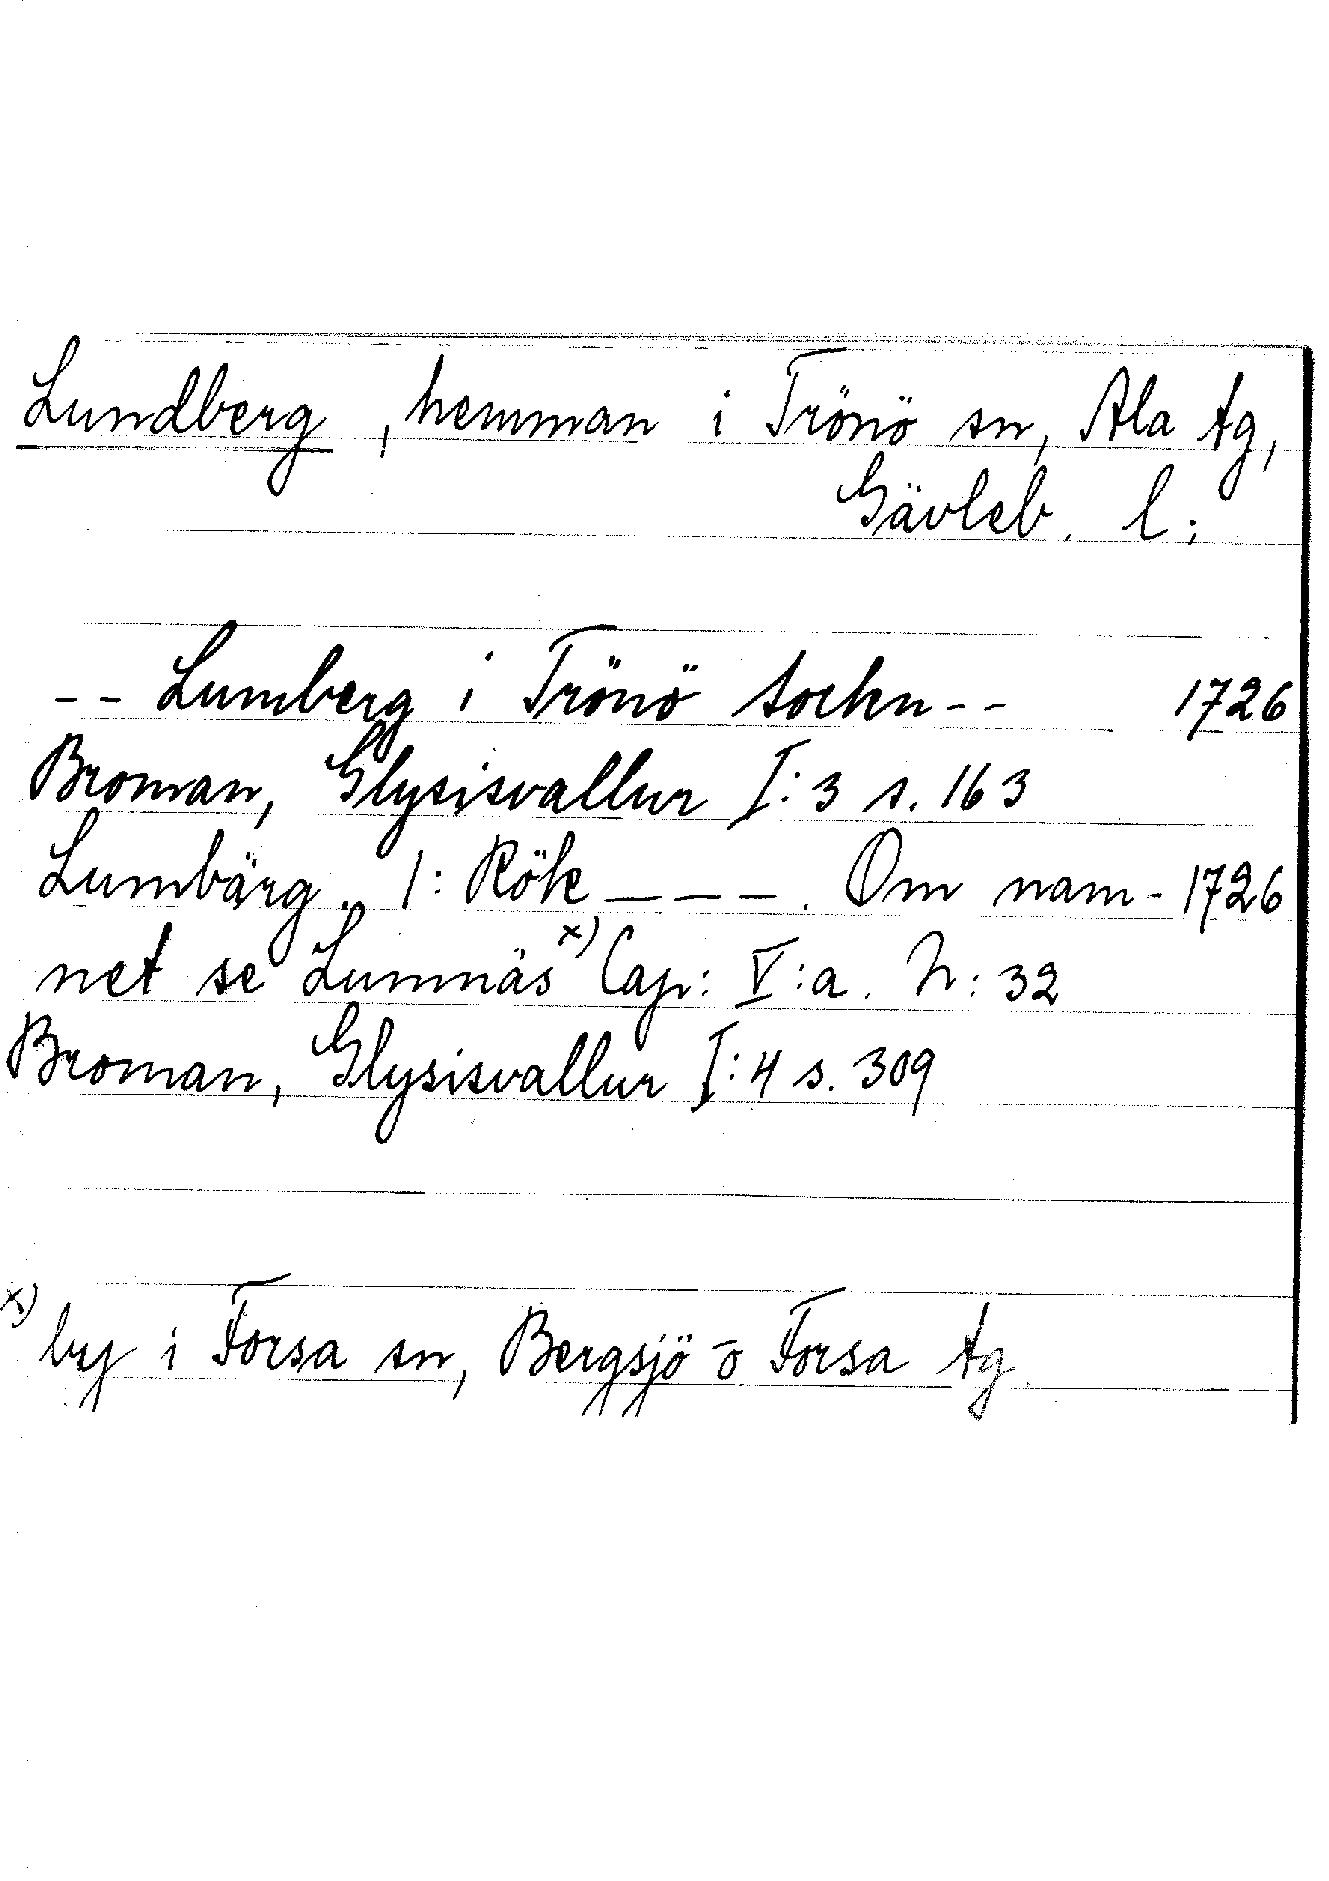 Lundberg, hemman i Trönö sn, Ala tg,
Gävleb. l.;
-- Lumberg i Trönö sockn -- 1726
Broman, Glysisvallur I:3 s. 163
Lumbärg. 1: Rök ___. Om nam- 1726
net se Lumnäs x) Cap: V:a. N: 32
Broman, Glysisvallur I:4 s. 309
x) by i Forsa sn, Bergsjö o Forsa tg.